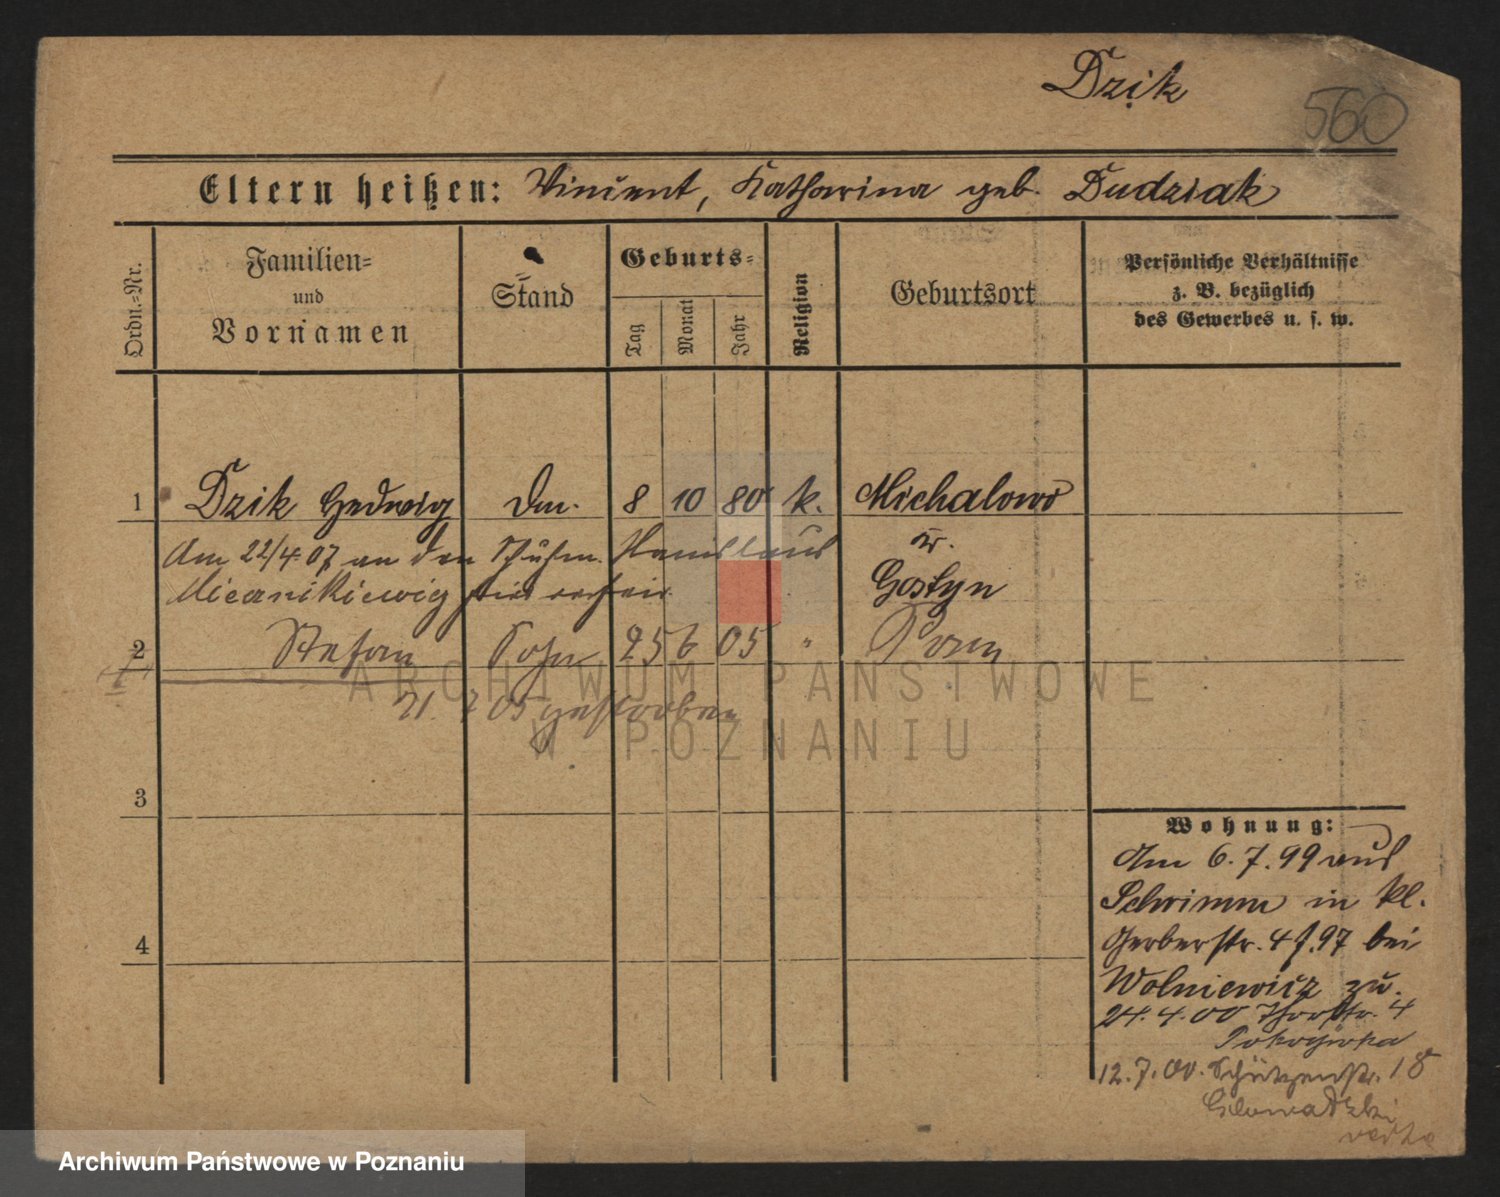 Dzik
560
Eltern heißen: Vincent, Katharina geb. Dudziak
Ordn.=Nr.
Familien=
und
Vornamen
Stand
Geburts=
Tag
Monat
Jahr
Religion
Geburtsort
Persönliche Verhältnisse
z. B. bezüglich
des Gewerbes u. s. w.
1 Dzik Hedwig Dm. 8 10 80 k. Michalowo
Am 22/4 07 an den Schuhm. Stanislaus
Kr.
Gostyn
2 Stefan Sohn 25 6 05 " Posen
21. 7 05 gestorben
3
4
Wohnung:
Am 6. 7. 99 aus
Schrimm in kl.
Gerberstr. 4 f. 97 bei
Wolniewicz zu.
24. 4. 00 Thorstr. 4
12. 7. 00. Schützenstr. 18
ARCHIWUM PAŃSTWOWE
W POZNANIU
Archiwum Państwowe w Poznaniu